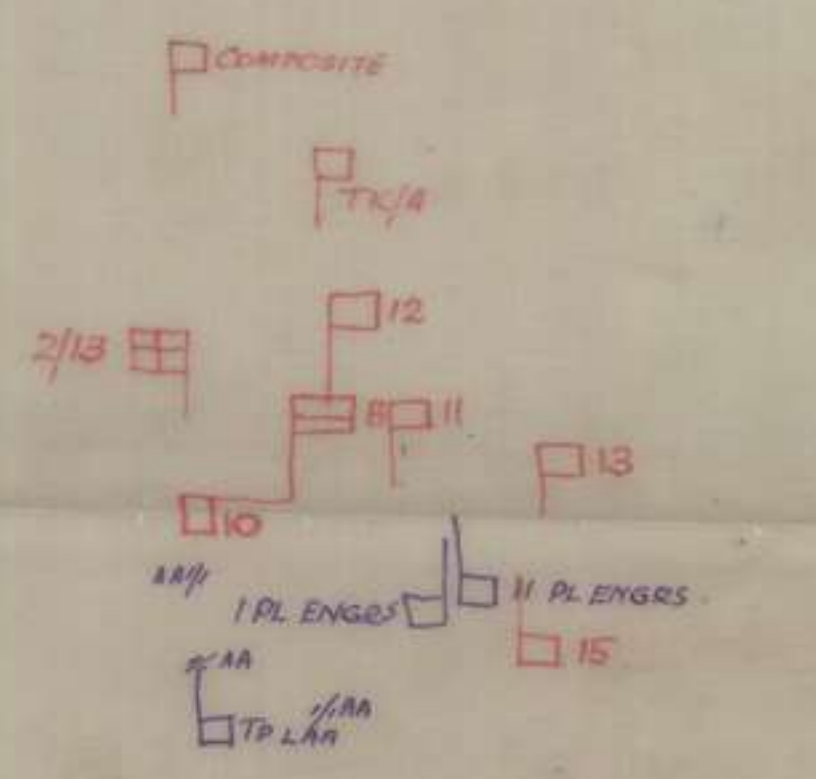 COMPOSITE
TK/A
12
2/13
8
11
13
10
AA
1 PL ENGRS
11 PL ENGRS
15
AA
TP LAA
AA